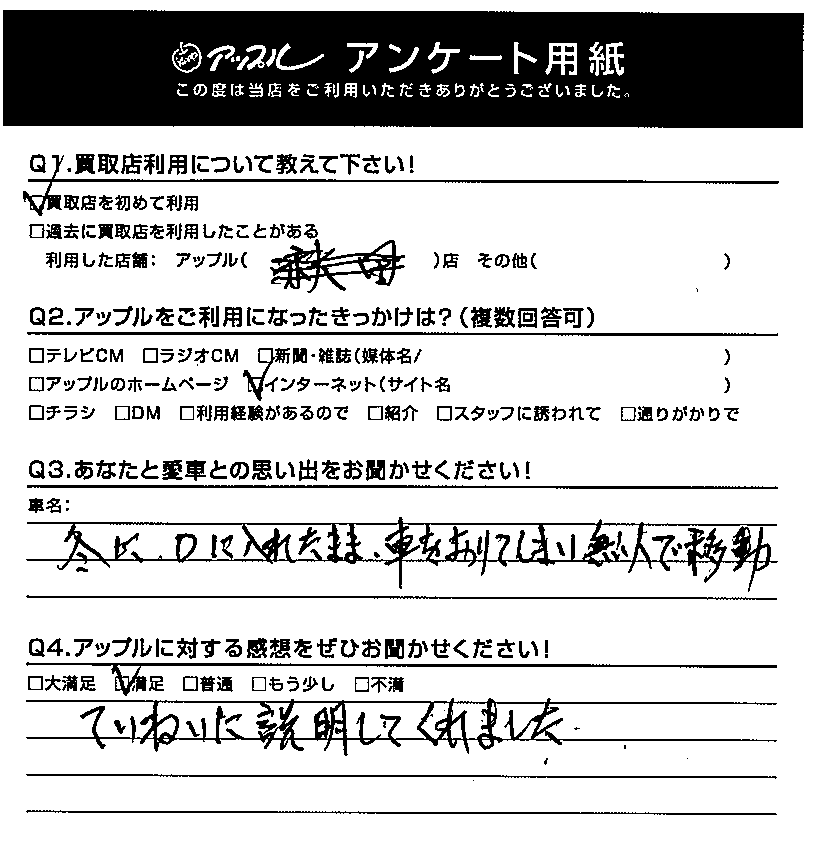 アップル アンケート用紙
この度は当店をご利用いただきありがとうございました。
Q1.買取店利用について教えて下さい!
☑買取店を初めて利用
□過去に買取店を利用したことがある
利用した店舗: アップル( )店 その他( )
Q2.アップルをご利用になったきっかけは?(複数回答可)
□テレビCM □ラジオCM □新聞・雑誌(媒体名/ )
□アップルのホームページ ☑インターネット(サイト名 )
□チラシ □DM □利用経験があるので □紹介 □スタッフに誘われて □通りがかりで
Q3.あなたと愛車との思い出をお聞かせください!
車名:
冬に、Dに入れたまま、車をおりてしまい無人で移動
Q4.アップルに対する感想をぜひお聞かせください!
□大満足 ☑満足 □普通 □もう少し □不満
ていねいに説明してくれました